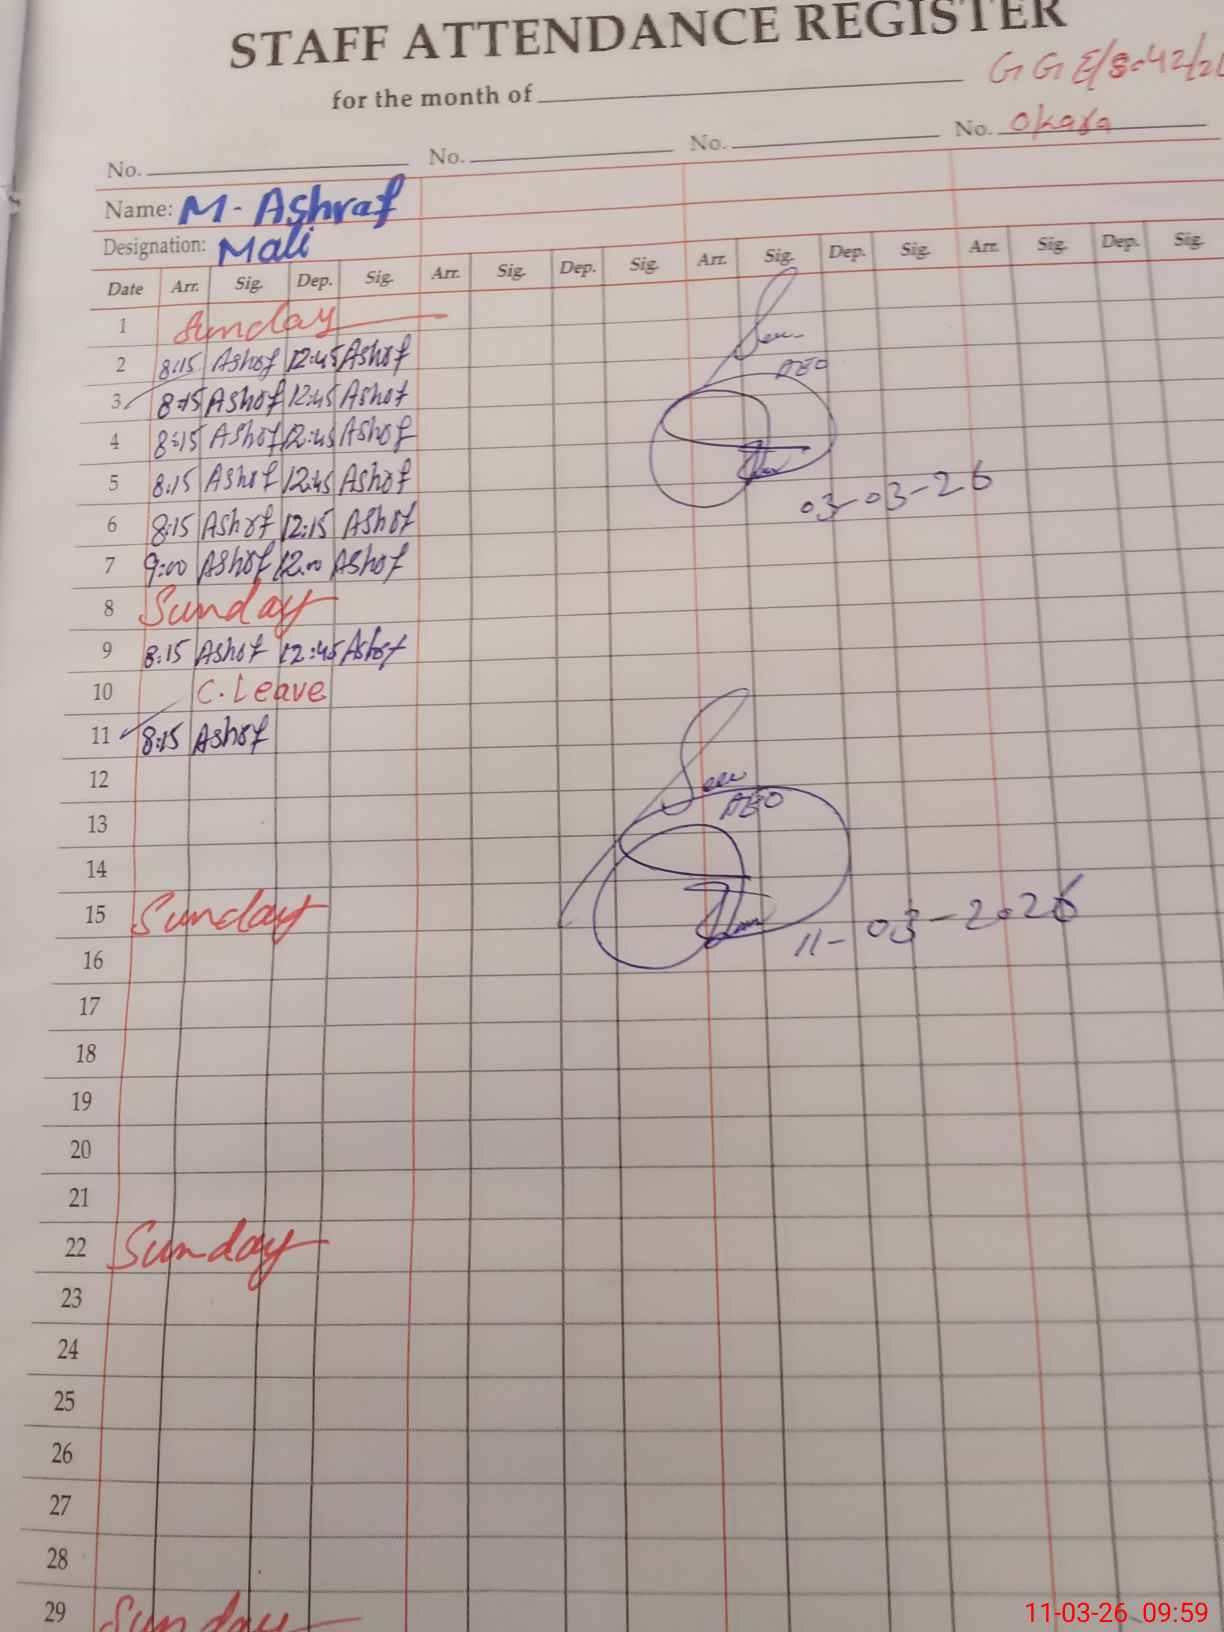 STAFF ATTENDANCE REGISTER
for the month of
GGE/S.42/2
No. No. No. No. Okara
Name: M. Ashraf
Designation: Mali
Date Arr. Sig. Dep. Sig. Arr. Sig. Dep. Sig. Arr. Sig. Dep. Sig. Arr. Sig. Dep. Sig.
1 Sunday
2 8:15 Ashrf 12:45 Ashrf
AEO
3 8:15 Ashrf 12:45 Ashrf
4 8:15 Ashrf 12:45 Ashrf
5 8:15 Ashrf 12:45 Ashrf
03-03-26
6 8:15 Ashrf 12:15 Ashrf
7 9:00 Ashrf 12:00 Ashrf
8 Sunday
9 8:15 Ashrf 12:45 Ashrf
10 C. Leave
11 8:15 Ashrf
12 Seen
13 AEO
14
15 Sunday 11-03-2026
16
17
18
19
20
21
22 Sunday
23
24
25
26
27
28
29 Sunday
11-03-26 09:59